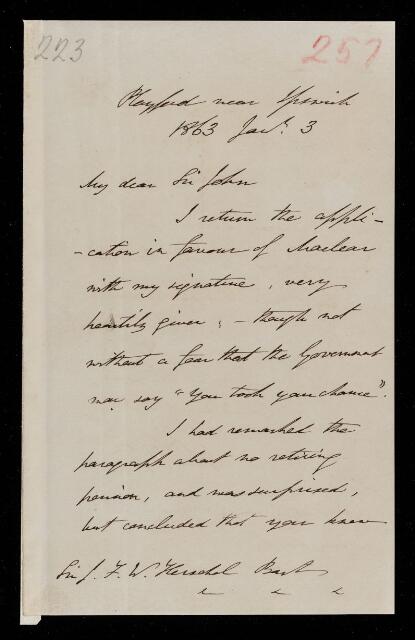 223
257
Playford near Ipswich
1863 Jan. 3
My dear Sir John
I return the appli-
-cation in favour of Maclear
with my signature, very
heartily given; - though not
without a fear that the Government
may say "You took your chance".
I had remarked the
paragraph about no retiring
pension, and was surprised,
but concluded that you knew
Sir J. F. W. Herschel Bart